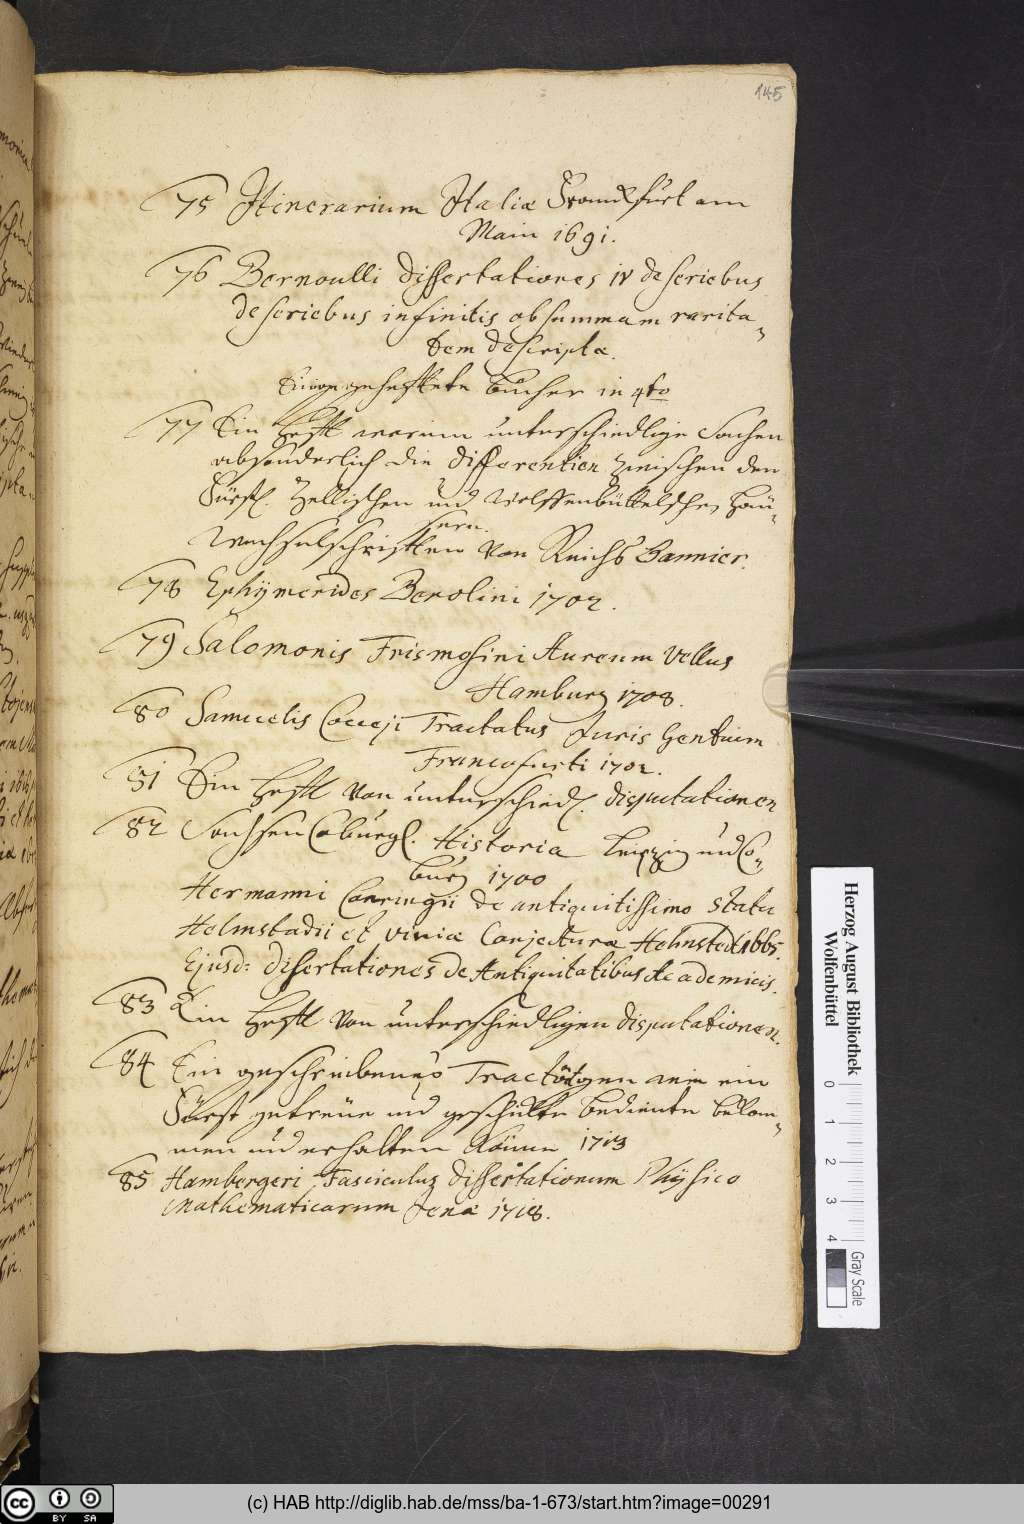 145
75 Itinerarium Italiæ Franckfurt am
Main 1691.
76 Bernoulli Dissertationes IV de seriebus
de seriebus infinitis ob summam rarita-
tem descriptæ.
Einige geheftete Bücher in 4to
77 Ein Heft worinn unterschiedliche Sachen
absonderlich die differentien zwischen den
Fürstl. Zellischen und Wolffenbüttelschen Häu-
sern.
Wechselschriften von Reichs Bannier.
78 Ephymerides Berolini 1702.
79 Salomonis Trismosini Aureum Vellus
Hamburg 1708.
80 Samuelis Cocceji Tractatus Juris Gentium
Francofurti 1702.
81 Ein Heft von unterschiedl. disputationen
82 Sachsen Coburgl. Historia Leipzig und Co-
burg 1700
Hermanni Conringii de antiquitissimo statu
Helmstadii et viciniæ Conjecturæ Helmsted 1665.
Ejusd: disertationes de Antiquitatibus Academicis.
83 Ein Heft von unterschiedlichen disputationen.
84 Ein geschriebenes Tractätgen wie ein
Fürst getreue und geschickte bediente bekom-
men und erhalten könne 1713
85 Hambergeri Fasciculus dissertationum Physico
Mathematicarum Jenæ 1718.
Herzog August Bibliothek
Wolfenbüttel
0 1 2 3 4
Gray Scale
cc BY SA
(c) HAB http://diglib.hab.de/mss/ba-1-673/start.htm?image=00291